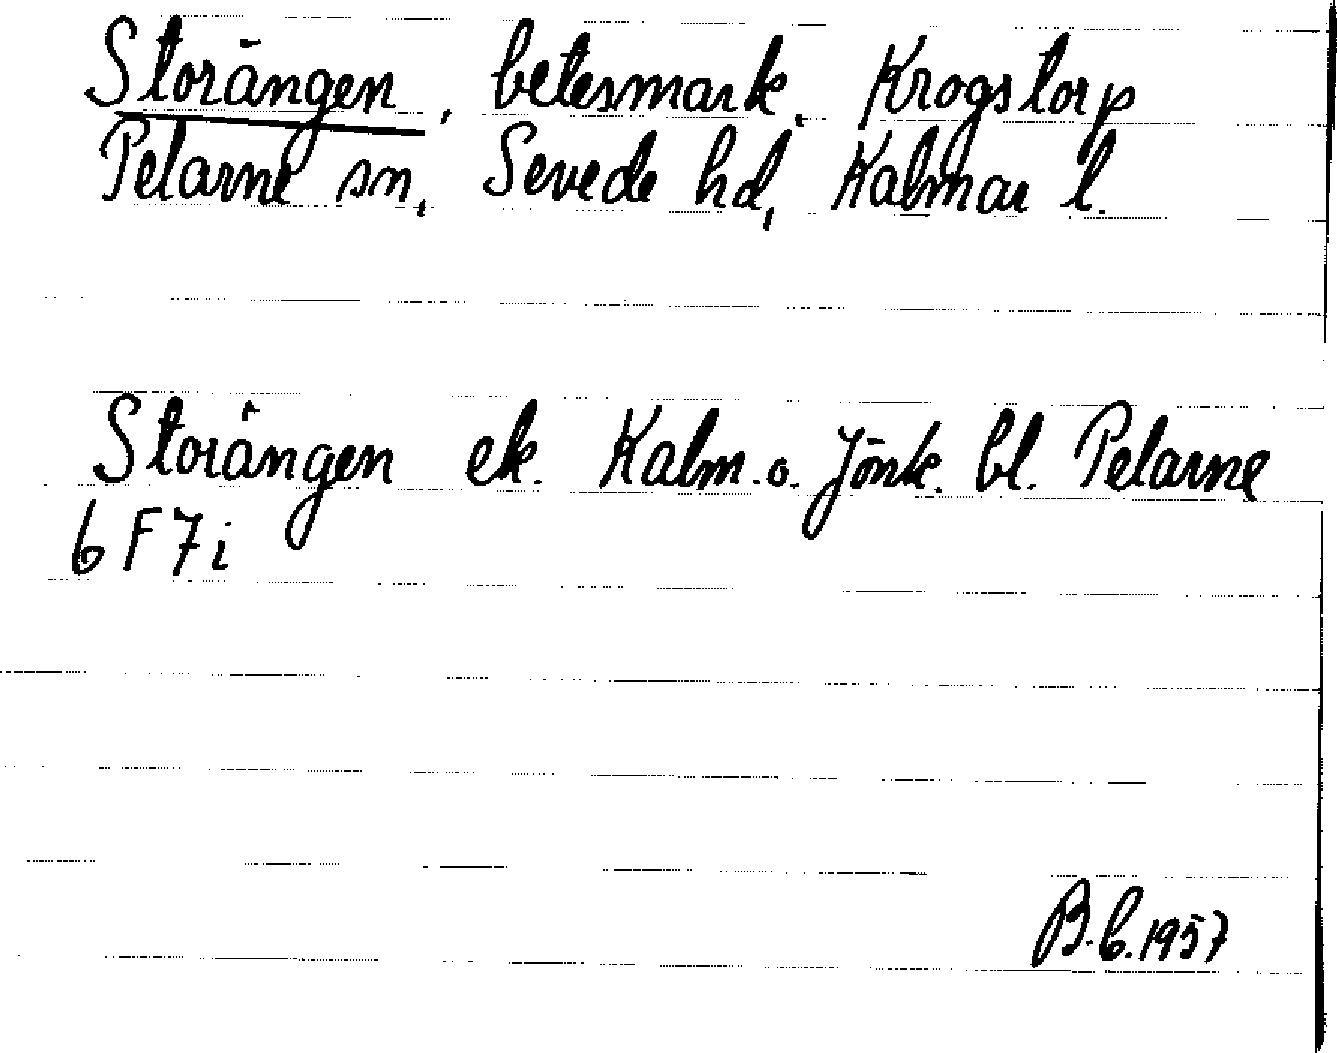 Storängen, betesmark, Krogstorp
Pelarne sn, Sevede hd, Kalmar l.
Storängen ek. Kalm. o. Jönk. bl. Pelarne
6 F 7 i
B.b. 1957